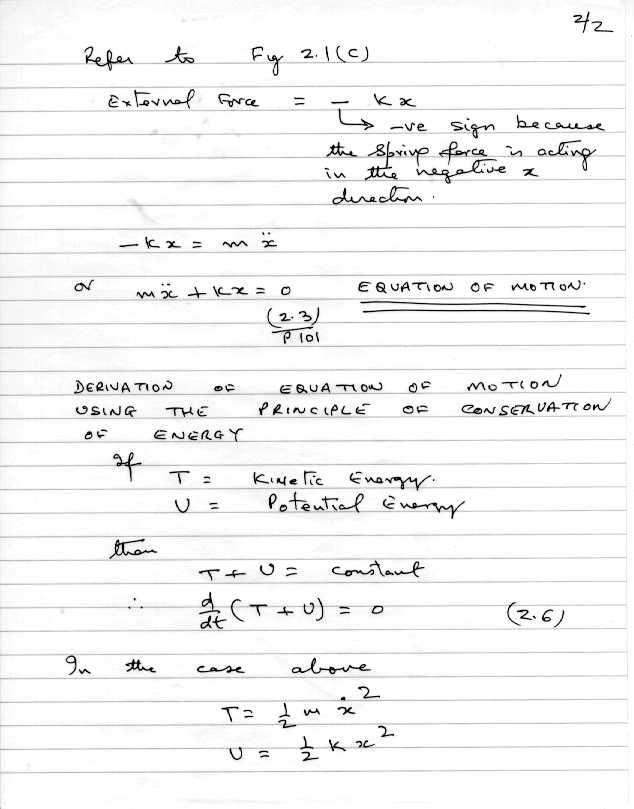 2/2
Refer to Fig 2.1(c)
External Force = - kx
↳ -ve sign because
the spring force is acting
in the negative x
direction.
-kx = mẍ
or mẍ + kx = 0 EQUATION OF MOTION.
(2.3)
P 101
DERIVATION OF EQUATION OF MOTION
USING THE PRINCIPLE OF CONSERVATION
OF ENERGY
If
T = Kinetic Energy.
U = Potential Energy
then
T + U = constant
∴ d/dt (T + U) = 0 (2.6)
In the case above
T = 1/2 m ẋ²
U = 1/2 k x²